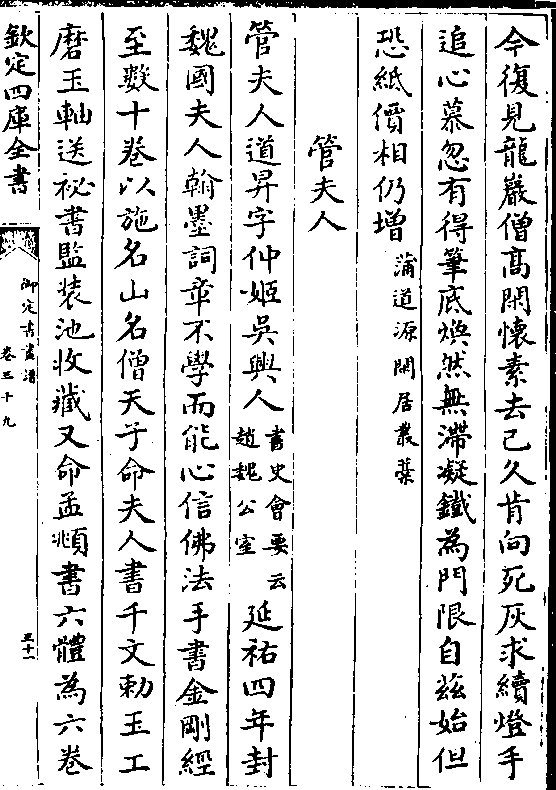 今復見龍巖僧高閑懷素去已久肯向死灰求續燈手
追心慕忽有得筆底煥然無滯凝鐵為門限自兹始但
恐紙價相仍增蒲道源閑居叢藁
管夫人
管夫人道昇字仲姬吳興人書史會要云趙魏公室延祐四年封
魏國夫人翰墨詞章不學而能心信佛法手書金剛經
至數十卷以施名山名僧天子命夫人書千文勅玉工
磨玉軸送祕書監装池收藏又命孟頫書六體為六卷
欽定四庫全書
御定書畫譜
卷三十九
三十一